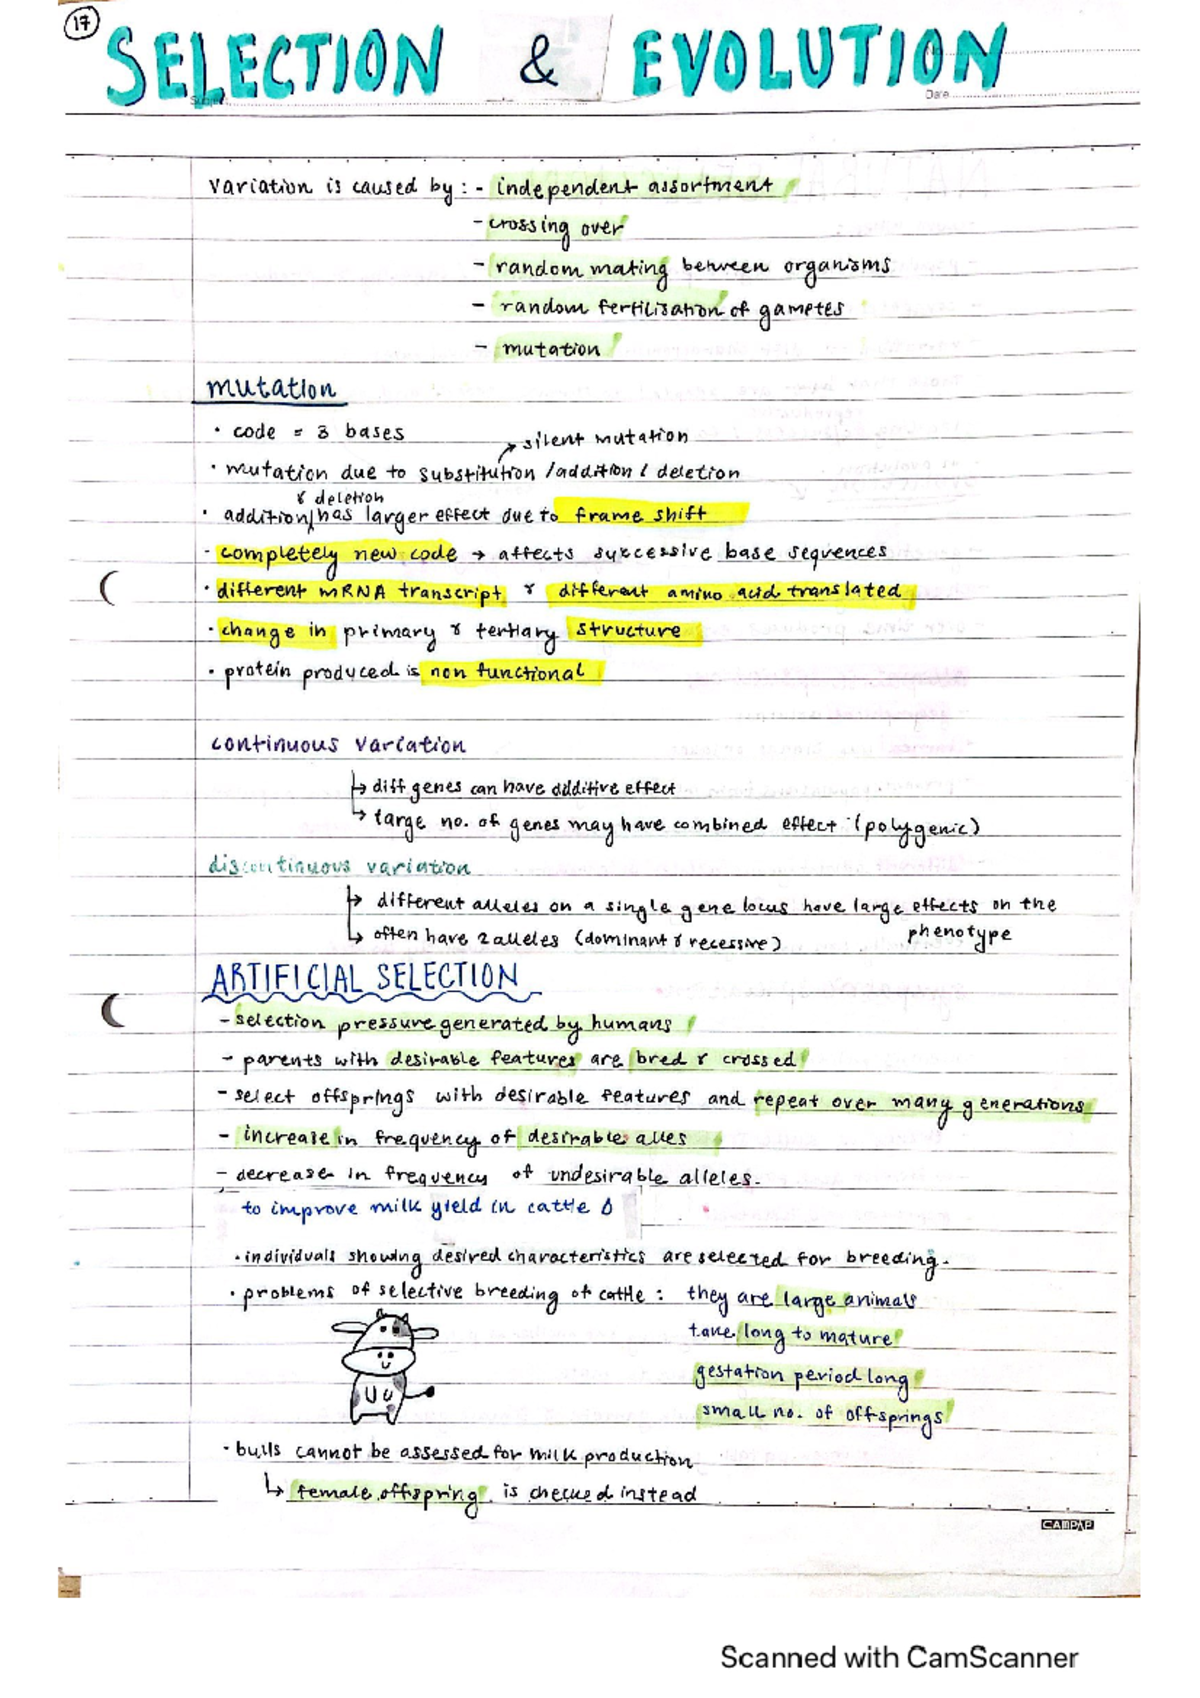 17
SELECTION & EVOLUTION
Subject
Date
Variation is caused by : - independent assortment
- crossing over
- random mating between organisms
- random fertilisation of gametes
- mutation
mutation
• code = 3 bases
silent mutation
• mutation due to substitution /addition / deletion
& deletion
• addition/has larger effect due to frame shift
• completely new code → affects successive base sequences
• different mRNA transcript & different amino acid translated
• change in primary & tertiary structure
• protein produced is non functional
continuous variation
↳ diff genes can have additive effect
↳ large no. of genes may have combined effect (polygenic)
discontinuous variation
↳ different alleles on a single gene locus have large effects on the
phenotype
↳ often have 2 alleles (dominant & recessive)
ARTIFICIAL SELECTION
- selection pressure generated by humans
- parents with desirable features are bred & crossed
- select offsprings with desirable features and repeat over many generations
- increase in frequency of desirable alles
- decrease in frequency of undesirable alleles.
to improve milk yield in cattle
• individuals showing desired characteristics are selected for breeding.
• problems of selective breeding of cattle : they are large animals
take long to mature
gestation period long
small no. of offsprings
• bulls cannot be assessed for milk production
↳ female offspring is checked instead
CAMPAP
Scanned with CamScanner